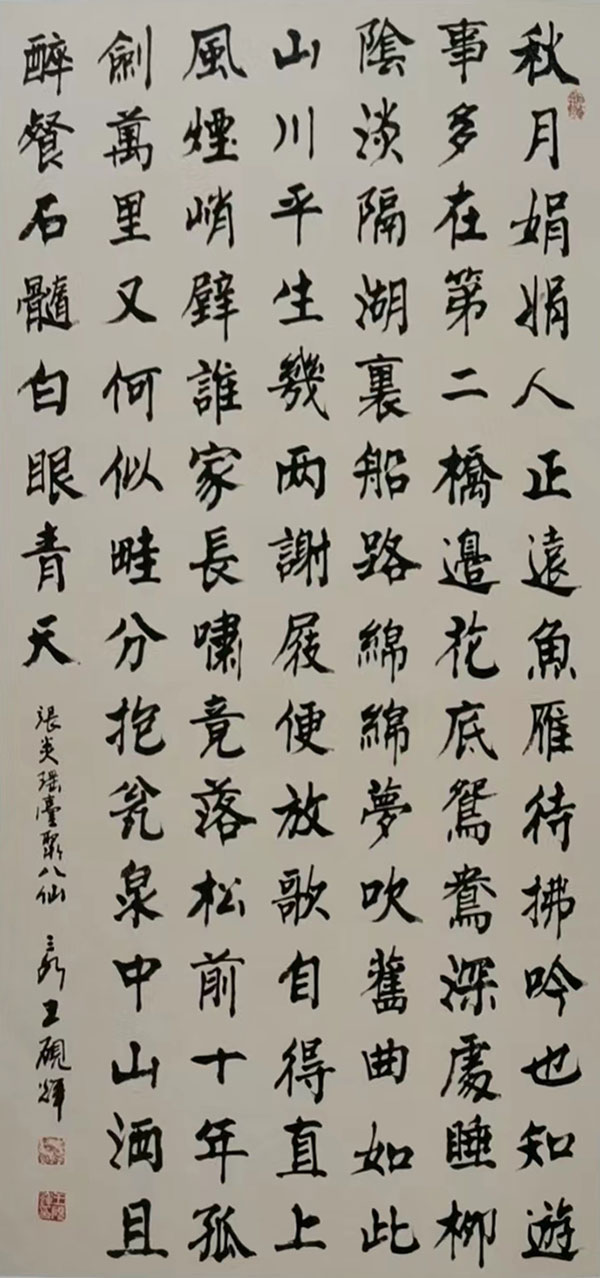 秋月娟娟人正遠魚雁待拂吟也知遊
事多在第二橋邊花底鴛鴦深處睡柳
陰淡隔湖裏船路綿綿夢吹舊曲如此
山川平生幾两謝屐便放歌自得直上
風煙峭壁誰家長嘯竟落松前十年孤
劍萬里又何似畦分抱瓮泉中山酒且
醉餐石髓白眼青天
張炎瑶臺聚八仙 王硯輝